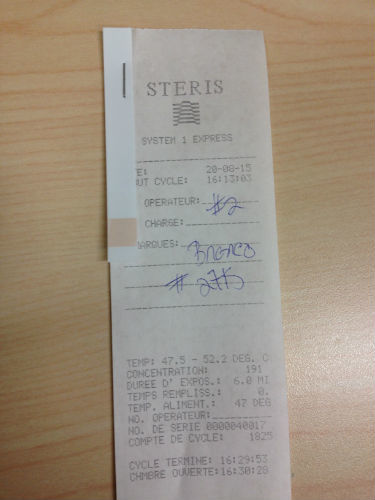 STERIS
SYSTEM 1 EXPRESS
TE: 20-08-15
UT CYCLE: 16:13:03
OPERATEUR: #2
CHARGE:
ARQUES:
#
TEMP: 47.5 - 52.2 DEG. C
CONCENTRATION: 191
DUREE D' EXPOS.: 6.0 MI
TEMPS REMPLISS.: 0.
TEMP. ALIMENT.: 47 DEG
NO. OPERATEUR:
NO. DE SERIE 0000040017
COMPTE DE CYCLE: 1825
CYCLE TERMINE: 16:29:53
CHMBRE OUVERTE:16:30:28